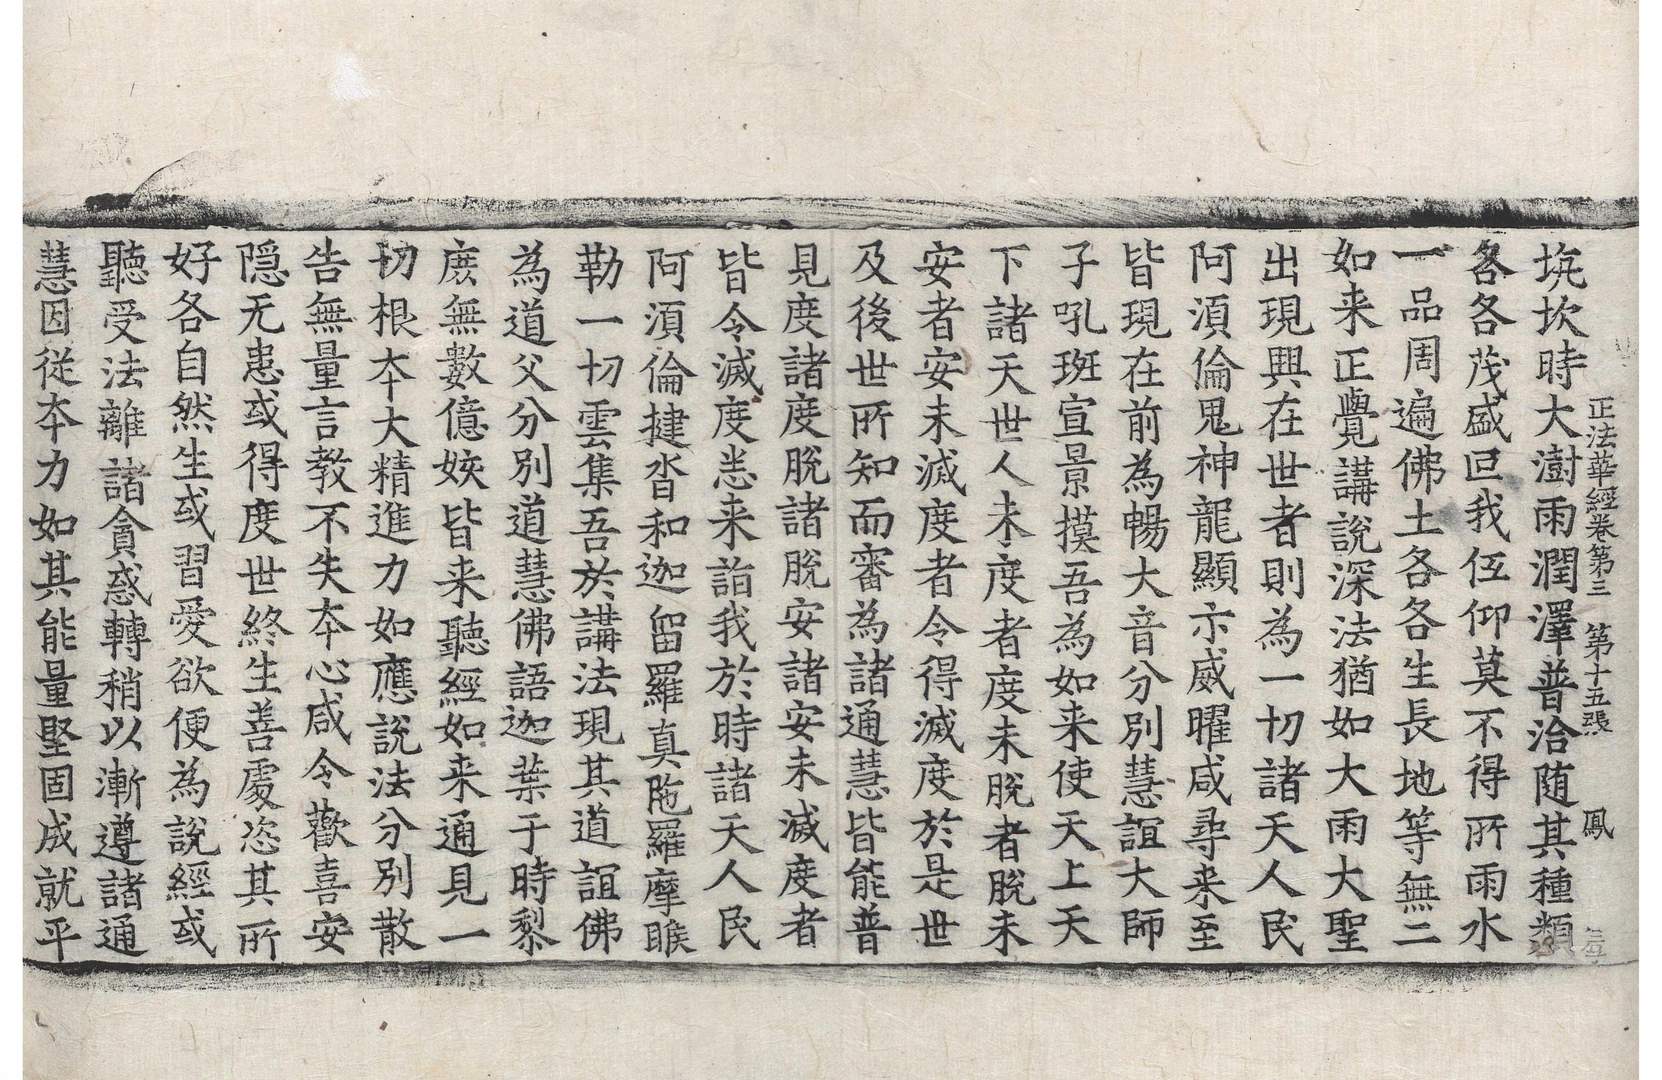 正法華經卷第三 第十五張 鳳
坑坎時大澍雨潤澤普洽随其種類
各各茂盛叵我低仰莫不得所雨水
一品周遍佛土各各生長地等無二
如来正覺講說深法猶如大雨大聖
出現興在世者則為一切諸天人民
阿湏倫鬼神龍顯示威曜咸尋来至
皆現在前為暢大音分別慧誼大師
子吼班宣景摸吾為如来使天上天
下諸天世人未度者度未脫者脫未
安者安未滅度者令得滅度於是世
及後世所知而審為諸通慧皆能普
見度諸度脫諸脫安諸安未滅度者
皆令滅度悉来詣我於時諸天人民
阿湏倫揵沓和迦留羅真陁羅摩睺
勒一切雲集吾於講法現其道誼佛
為道父分別道慧佛語迦葉于時黎
庻無數億姟皆来聽經如来通見一
切根夲大精進力如應說法分別散
告無量言教不失夲心咸令歡喜安
隠无患或得度世終生善處恣其所
好各自然生或習愛欲便為說經或
聽受法離諸貪惑轉稍以漸遵諸通
慧因從夲力如其能量堅固成就平